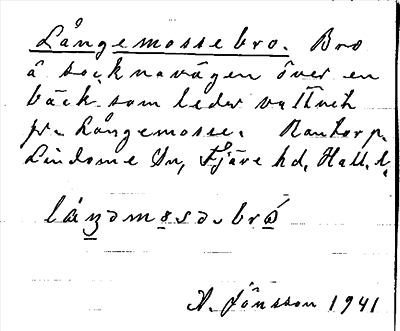 Långemossebro. Bro
å socknavägen över en
bäck som leder vattnet
fr. Långemosse. Rantorp.
Lindome Sn, Fjäre hd, Hall. l.
låŋəmosə-bro
A. Jönsson 1941